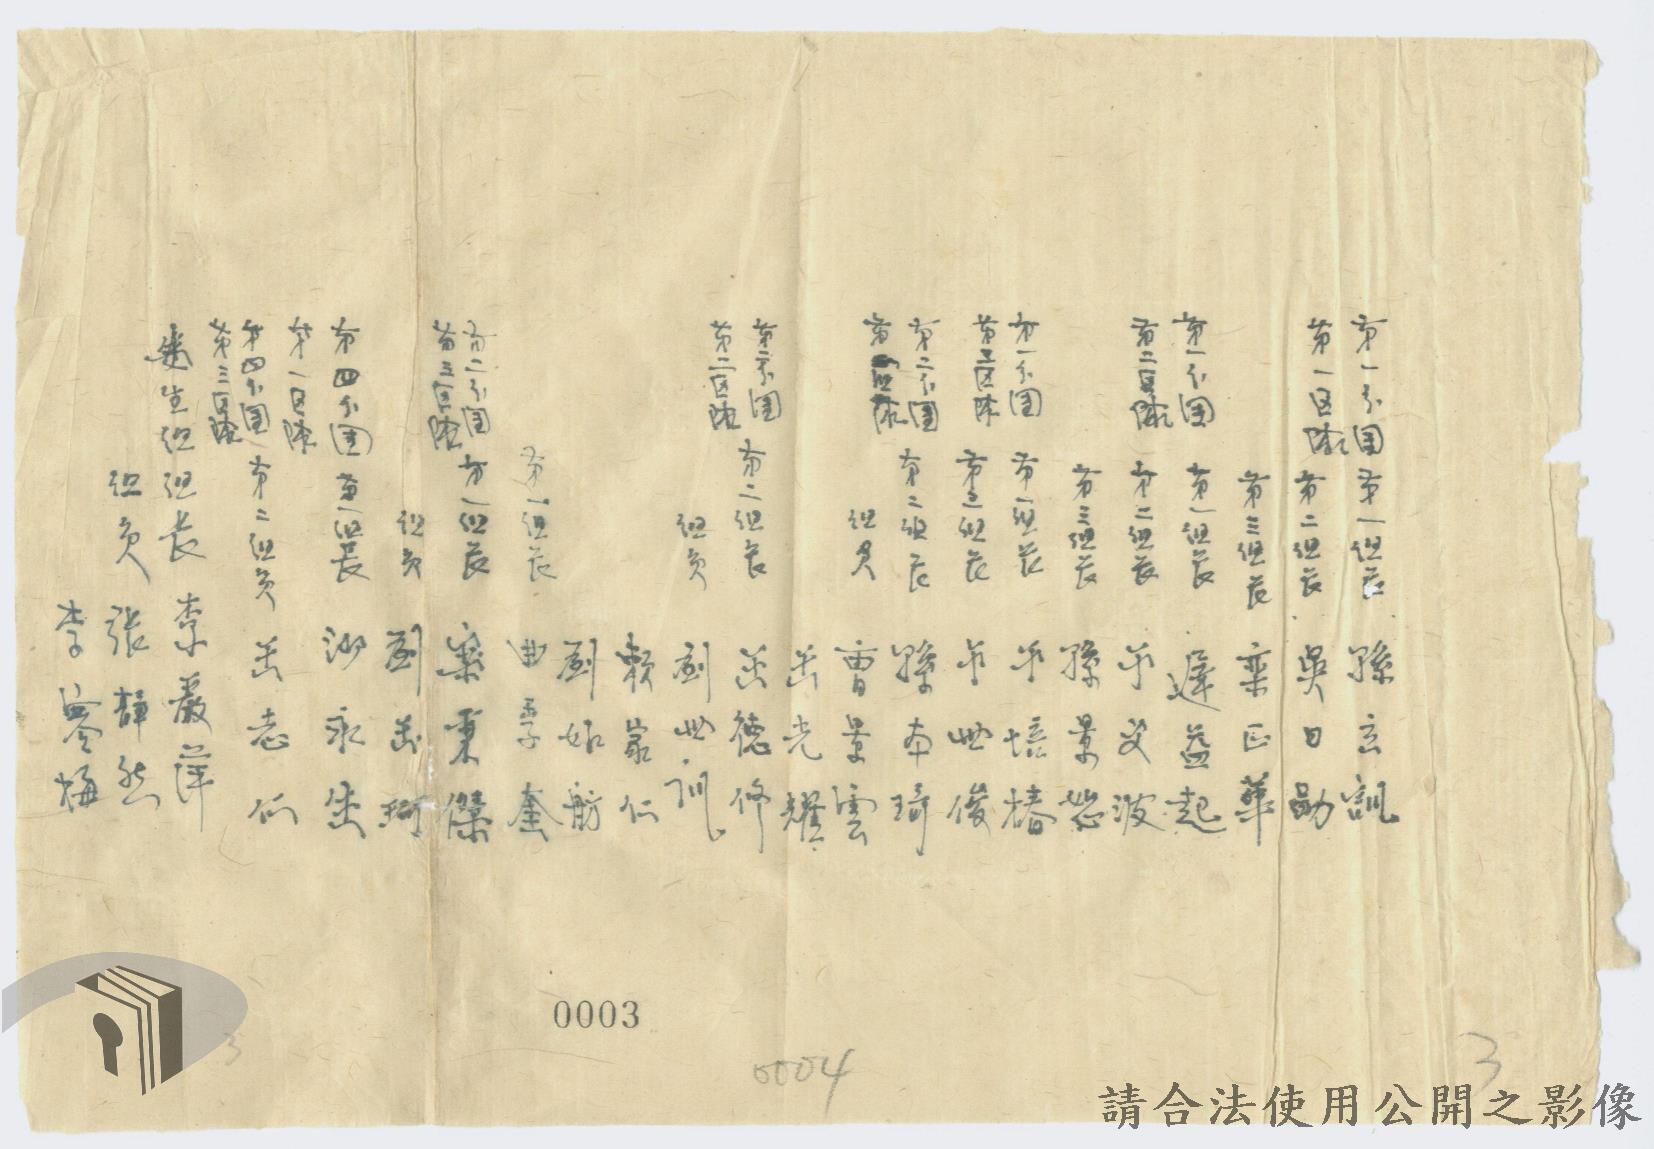 第一分團
第一区隊
第一組長 孫玄訓
第二組長 吳日勋
第三組長 栾正華
第一分團
第二区隊
第一組長 遲益起
第二組長 于文波
第三組長 孫景
第一分團
第三区隊
第一組長 于培椿
第三組長 于世俊
第二分團
第一区隊
第二組長 孫本琦
組員 曹景雲
光耀
第二分團
第二区隊
第二組長 德修
組員 劉世訓
賴家仁
劉始舫
第一組長 曲季奎
第二分團
第三区隊
第一組長 秉傑
組員 劉
第四分團
第一区隊
第一組長 永
第四分團
第三区隊
第二組員 志仁
衛生組組長 李嚴萍
組員 張靜然
李寒梅
0003
0004
3
3
請合法使用公開之影像